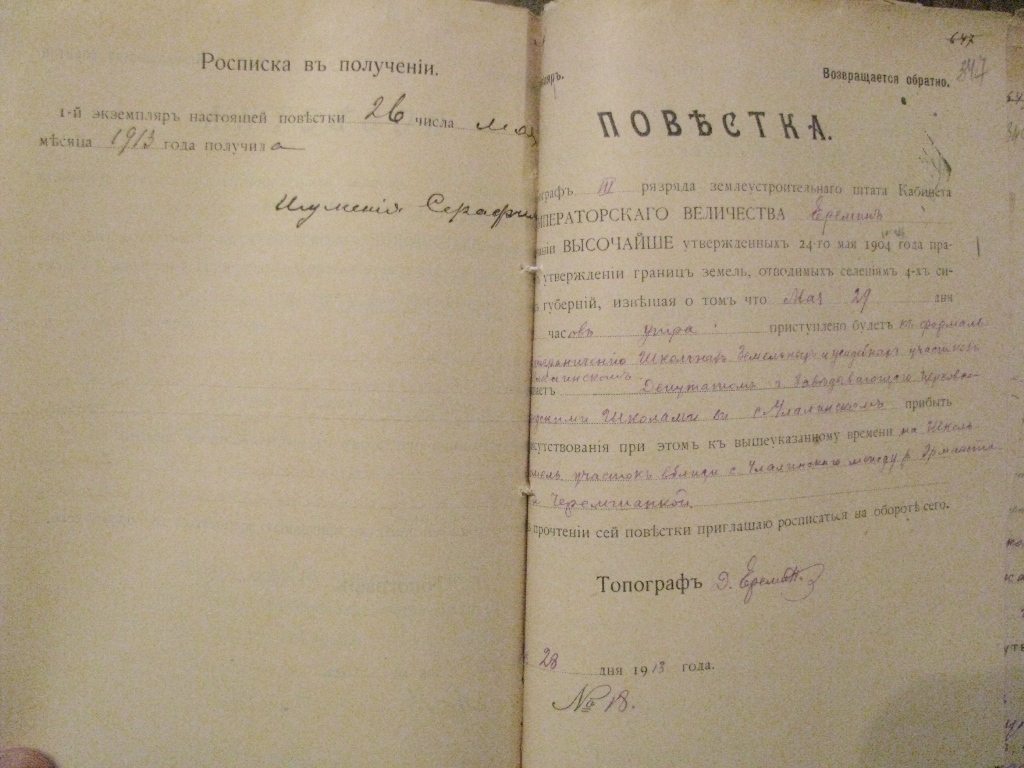 Росписка въ полученіи.
1-й экземпляръ настоящей повѣстки 26 числа мая
мѣсяца 1913 года получила
Игуменія Серафим
647
347
Возвращается обратно.
ПОВѢСТКА.
ографъ III разряда землеустроительнаго штата Кабинета
МПЕРАТОРСКАГО ВЕЛИЧЕСТВА Ереминъ
ніи ВЫСОЧАЙШЕ утвержденныхъ 24-го мая 1904 года пра-
утвержденіи границъ земель, отводимыхъ селеніямъ 4-хъ си-
губерній, извѣщая о томъ что Мая 29 дня
часовъ утра приступлено будетъ къ формаль-
ограниченію Школьныхъ Земельныхъ и усадебныхъ участковъ
Депутатомъ Завѣдовающаго Церковно-
Школами въ с. Улалинскомъ прибыть
сутствованія при этомъ къ вышеуказанному времени на Школь
участокъ вблизи с. Улалинскаго между р.
Черемшанкой.
прочтеніи сей повѣстки приглашаю росписаться на оборотѣ сего.
Топографъ Э. Ереминъ
28 дня 1913 года.
№ 18.